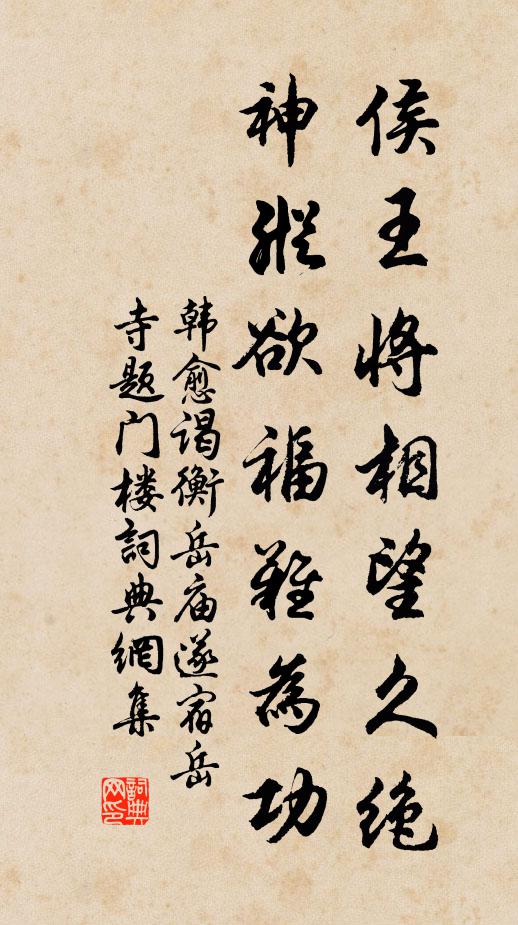 侯王将相望久绝
神縱欲福難為功
韩愈谒衡岳庙遂宿岳
寺题门楼詞典網集
詞典网印